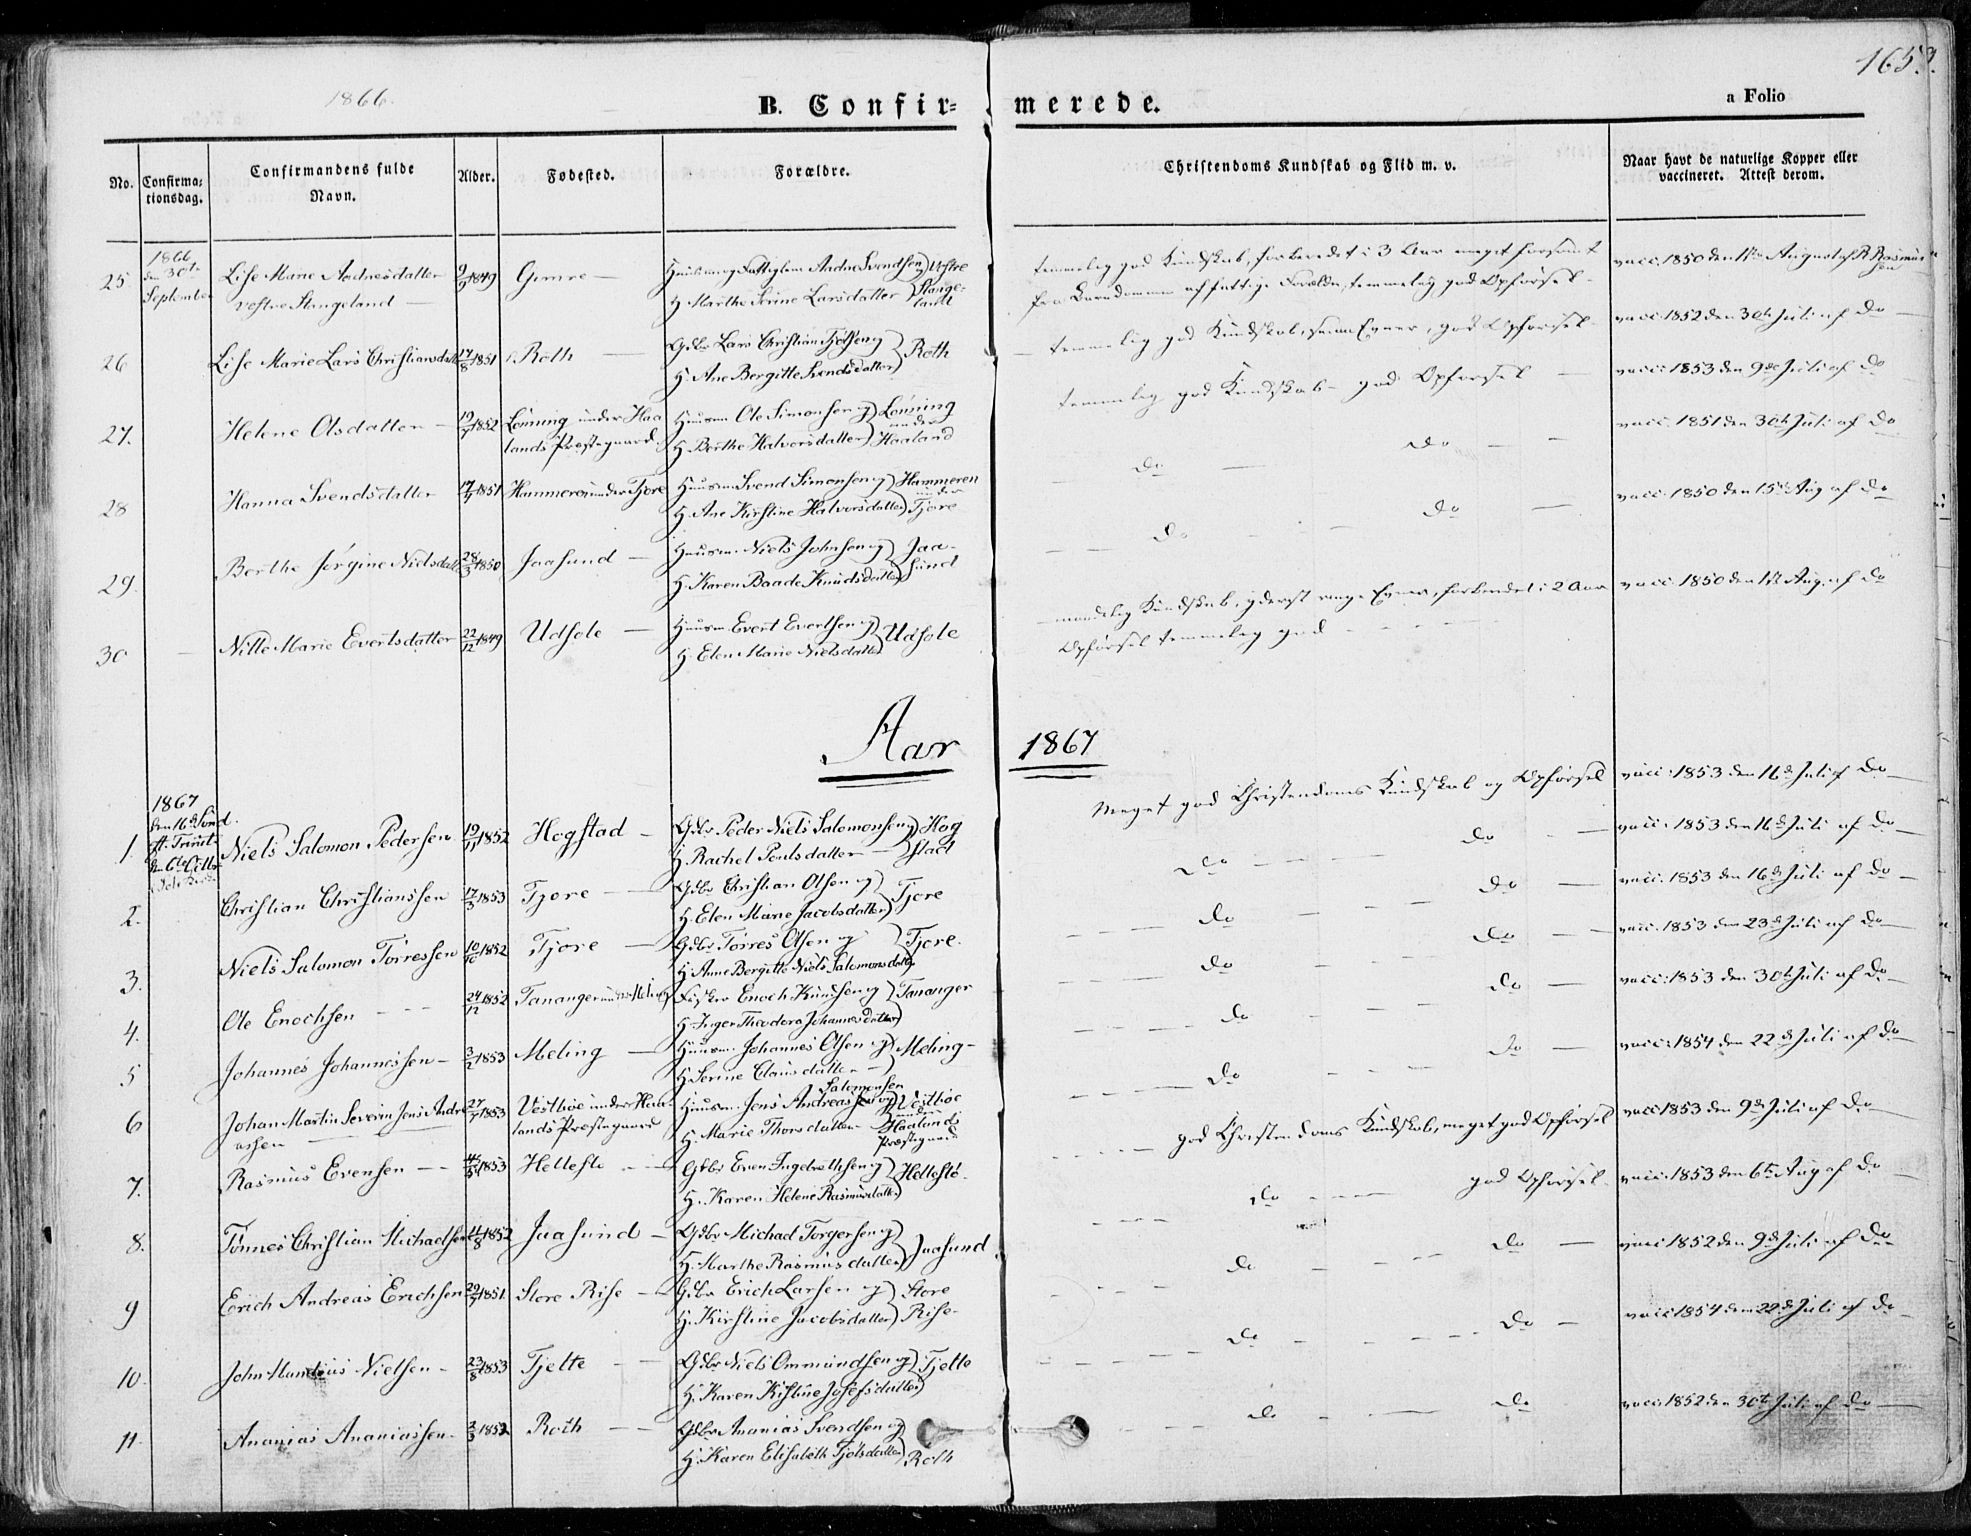 1866.
165.
B. Confir=
merede.
a Folio
No.
Confirma=
tionsdag.
Confirmandens fulde
Navn.
Alder.
Fødested.
Forældre.
Christendoms Kundskab og Flid m. v.
Naar havt de naturlige Kopper eller
vaccineret. Attest derom.
1866
den 30te
September
25 Lise Marie Aadnesdatter 9/9 1849 Gimre — Huusm og Fattiglem Aadne Svendsen og Vestre
Vestre Stangeland — H. Marthe Serine Larsdatter Stange-
land
temmelig god Kundskab, forberedet i 3 Aar meget forsømt
fra Barndommen af fattige Forældre, temmelig god Opførsel -
vacc. 1850 den 1ste August af R. Rasmus-
sen
26 Lise Marie Lars Christiansdatt 17/8 1851 Roth — Gdbr Lars Christian Tjølsen og
H. Ane Bergitte Svendsdatter Roth
temmelig god Kundskab, svage Evner, god Opførsel - vacc. 1852 den 30te Juli af do —
27. Helene Olsdatter — 19/7 1852 Lønning under Haa- Huusm Ole Simonsen og Lønning
lands Præstegaard. H. Berthe Halvorsdatter under Haaland
temmelig god Kundskab - god Opførsel — vacc. 1853 den 9de Juli af do
28 Hanna Svendsdatter 17/7 1851 Hammeren under Tjore Huusm Svend Simonsen og Hammeren
H. Ane Kirstine Halvorsdatter under Tjore
do — do — vacc. 1851 den 30te Juli af do
29. Berthe Jørgine Nielsdatt 28/3 1850 Jaasund — Huusm. Niels Johnsen og Jaa-
H. Karen Baade Knudsdatter sund
do — do — vacc. 1850 den 15de Aug af do
30 Nille Marie Evertsdatter 22/12 1849 Udsole — Huusm Evert Evertsen og Udsole
H. Elen Marie Nielsdatter
maadelig Kundskab, yderst ringe Evner, forberedet i 2 Aar
Opførsel temmelig god - - - - vacc. 1850 den 1ste Aug. af do
Aar 1867
1867
den 16de Sønd.
ft. Trinit.
den 6te Octbr
1. Niels Salomon Pedersen 19/11 1852 Hogstad — Gdbr Peder Niels Salomonsen og Hog
H. Rachel Poulsdatter — stad
Meget god Christendoms Kundskab og Opførsel vacc. 1853 den 16de Juli af do —
2. Christian Christianssen 17/3 1853 Tjore — Gdbr Christian Olsen og
H. Elen Marie Jacobsdatter Tjore
do do — vacc. 1853 den 16de Juli af do —
3. Niels Salomon Tørressen 10/10 1852 Tjore — Gdbr Tørres Olsen og Tjore.
H. Anne Bergitte Niels Salomonsdatter
do do — vacc. 1853 den 16de Juli af do —
4. Ole Enochsen - - - 24/12 1852 Tananger under Meling Fisker Enoch Knudsen og Tananger
H. Inger Theodora Johannesdatter
do do — vacc. 1853 den 23de Juli af do —
5 Johannes Johannessen — 3/2 1853 Meling — Huusm. Johannes Olsen og Meling -
H. Serine Clausdatter —
do do — vacc. 1853 den 30te Juli af do —
6 Johan Martin Severin Jens Andre- 27/7 1853 Vestbøe under Haa- Huusm. Jens Andreas Salomonsen og Vestbøe
assen lands Præstegaard H. Marie Thorsdatter under Haalands
Præstegaard
do do — vacc. 1854 den 22de Juli af do —
7. Rasmus Evensen — 1853 Hellestø — Gdbr Even Ingebrethsen og Hellestø.
H. Karen Helene Rasmusdatter
god Christendoms Kundskab, meget god Opførsel vacc. 1853 den 9de Juli af do —
8. Tønnes Christian Michaelsen 11/8 1852 Jaasund — Gdbr Michael Torgersen og
H. Marthe Rasmusdatter Jaasund
do - - - god Opførsel - vacc. 1853 den 6te Aug af do —
9 Erich Andreas Erichsen 29/7 1851 Store Risе — Gdbr Erich Larsen og Store
H. Kirstine Jacobsdatter Rise -
do do — vacc. 1852 den 9de Juli af do —
10. John Mandius Nielsen - 23/8 1853 Tjelte — Gdbr Niels Ommundsen og Tjelte
H. Karen Kistine Josefsdatter
do do — vacc. 1854 den 22de Juli af do —
11. Ananias Ananiassen - 3/3 1852 Roth — Gdbr Ananias Svendsen og
H. Karen Elisabeth Tjølsdatter Roth
do do vacc. 1852 den 30te Juli af do —